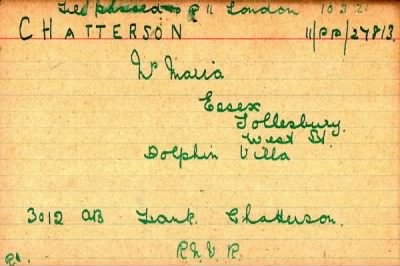 passed R 11 London 10 3 21
CHATTERSON 11/PP/27813.
Mrs Maria
Essex
Tollesbury.
West St.
Dolphin Villa
3012 AB Frank. Chatterson.
R.N.V.R.